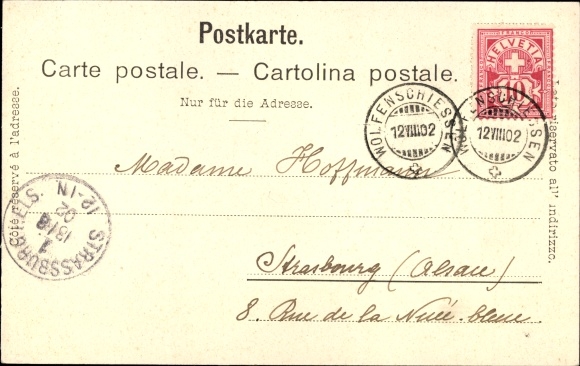 Postkarte.
Carte postale. — Cartolina postale.
Nur für die Adresse.
Côté réservé à l'adresse.
Lato riservato all' indirizzo.
HELVETIA
FRANCO
10
WOLFENSCHIESSEN
12.VIII.02
WOLFENSCHIESSEN
12.VIII.02
STRASSBURG
1
13/8
02
12-1N
Madame Hoffmann
Strasbourg (Alsace)
8. Rue de la Nuée-bleue.